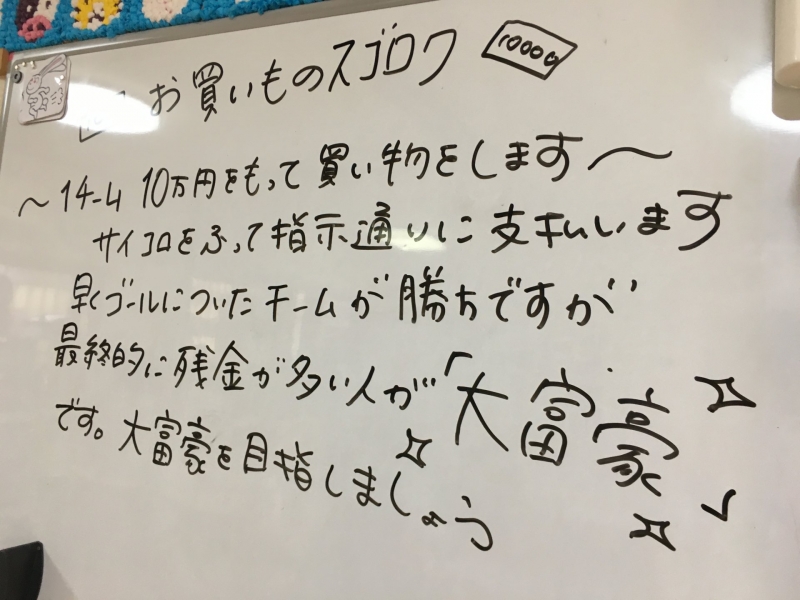 お買いものスゴロク
10000
～1チーム 10万円をもって買い物をします～
サイコロをふって指示通りに支払います
早くゴールについたチームが勝ちですが
最終的に残金が多い人が「大富豪」
です。大富豪を目指しましょう